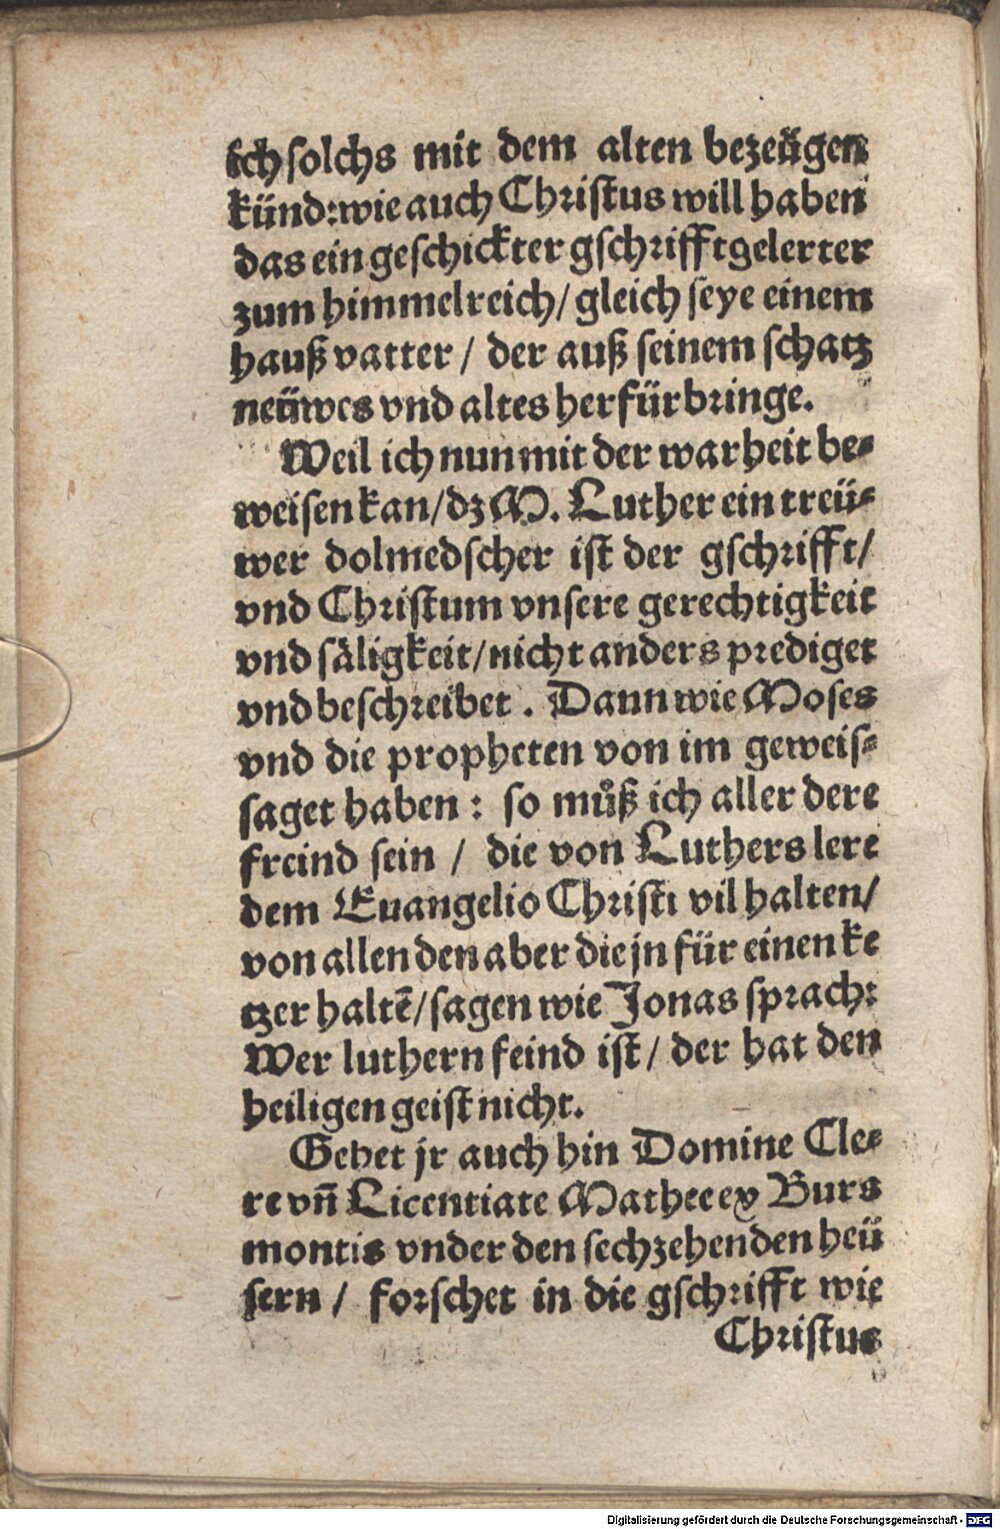 ich solchs mit dem alten bezeügen
künd: wie auch Christus will haben
das ein geschickter gschrifftgelerter
zum himmelreich / gleich seye einem
hauß vatter / der auß seinem schatz
neüwes vnd altes herfür bringe.
Weil ich nun mit der warheit be⸗
weisen kan / dz M. Luther ein treü⸗
wer dolmedscher ist der gschrifft /
vnd Christum vnsere gerechtigkeit
vnd säligkeit / nicht anders prediget
vnd beschreibet . Dann wie Moses
vnd die propheten von im geweis⸗
saget haben : so můß ich aller dere
freind sein / die von Luthers lere
dem Euangelio Christi vil halten /
von allen den aber die jn für einen ke
tzer haltē / sagen wie Jonas sprach:
Wer luthern feind ist / der hat den
heiligen geist nicht.
Gehet jr auch hin Domine Cle⸗
re vn̄ Licentiate Matheeex Burs
montis vnder den sechzehenden heü
sern / forschet in die gschrifft wie
Christus
Digitalisierung gefördert durch die Deutsche Forschungsgemeinschaft - DFG